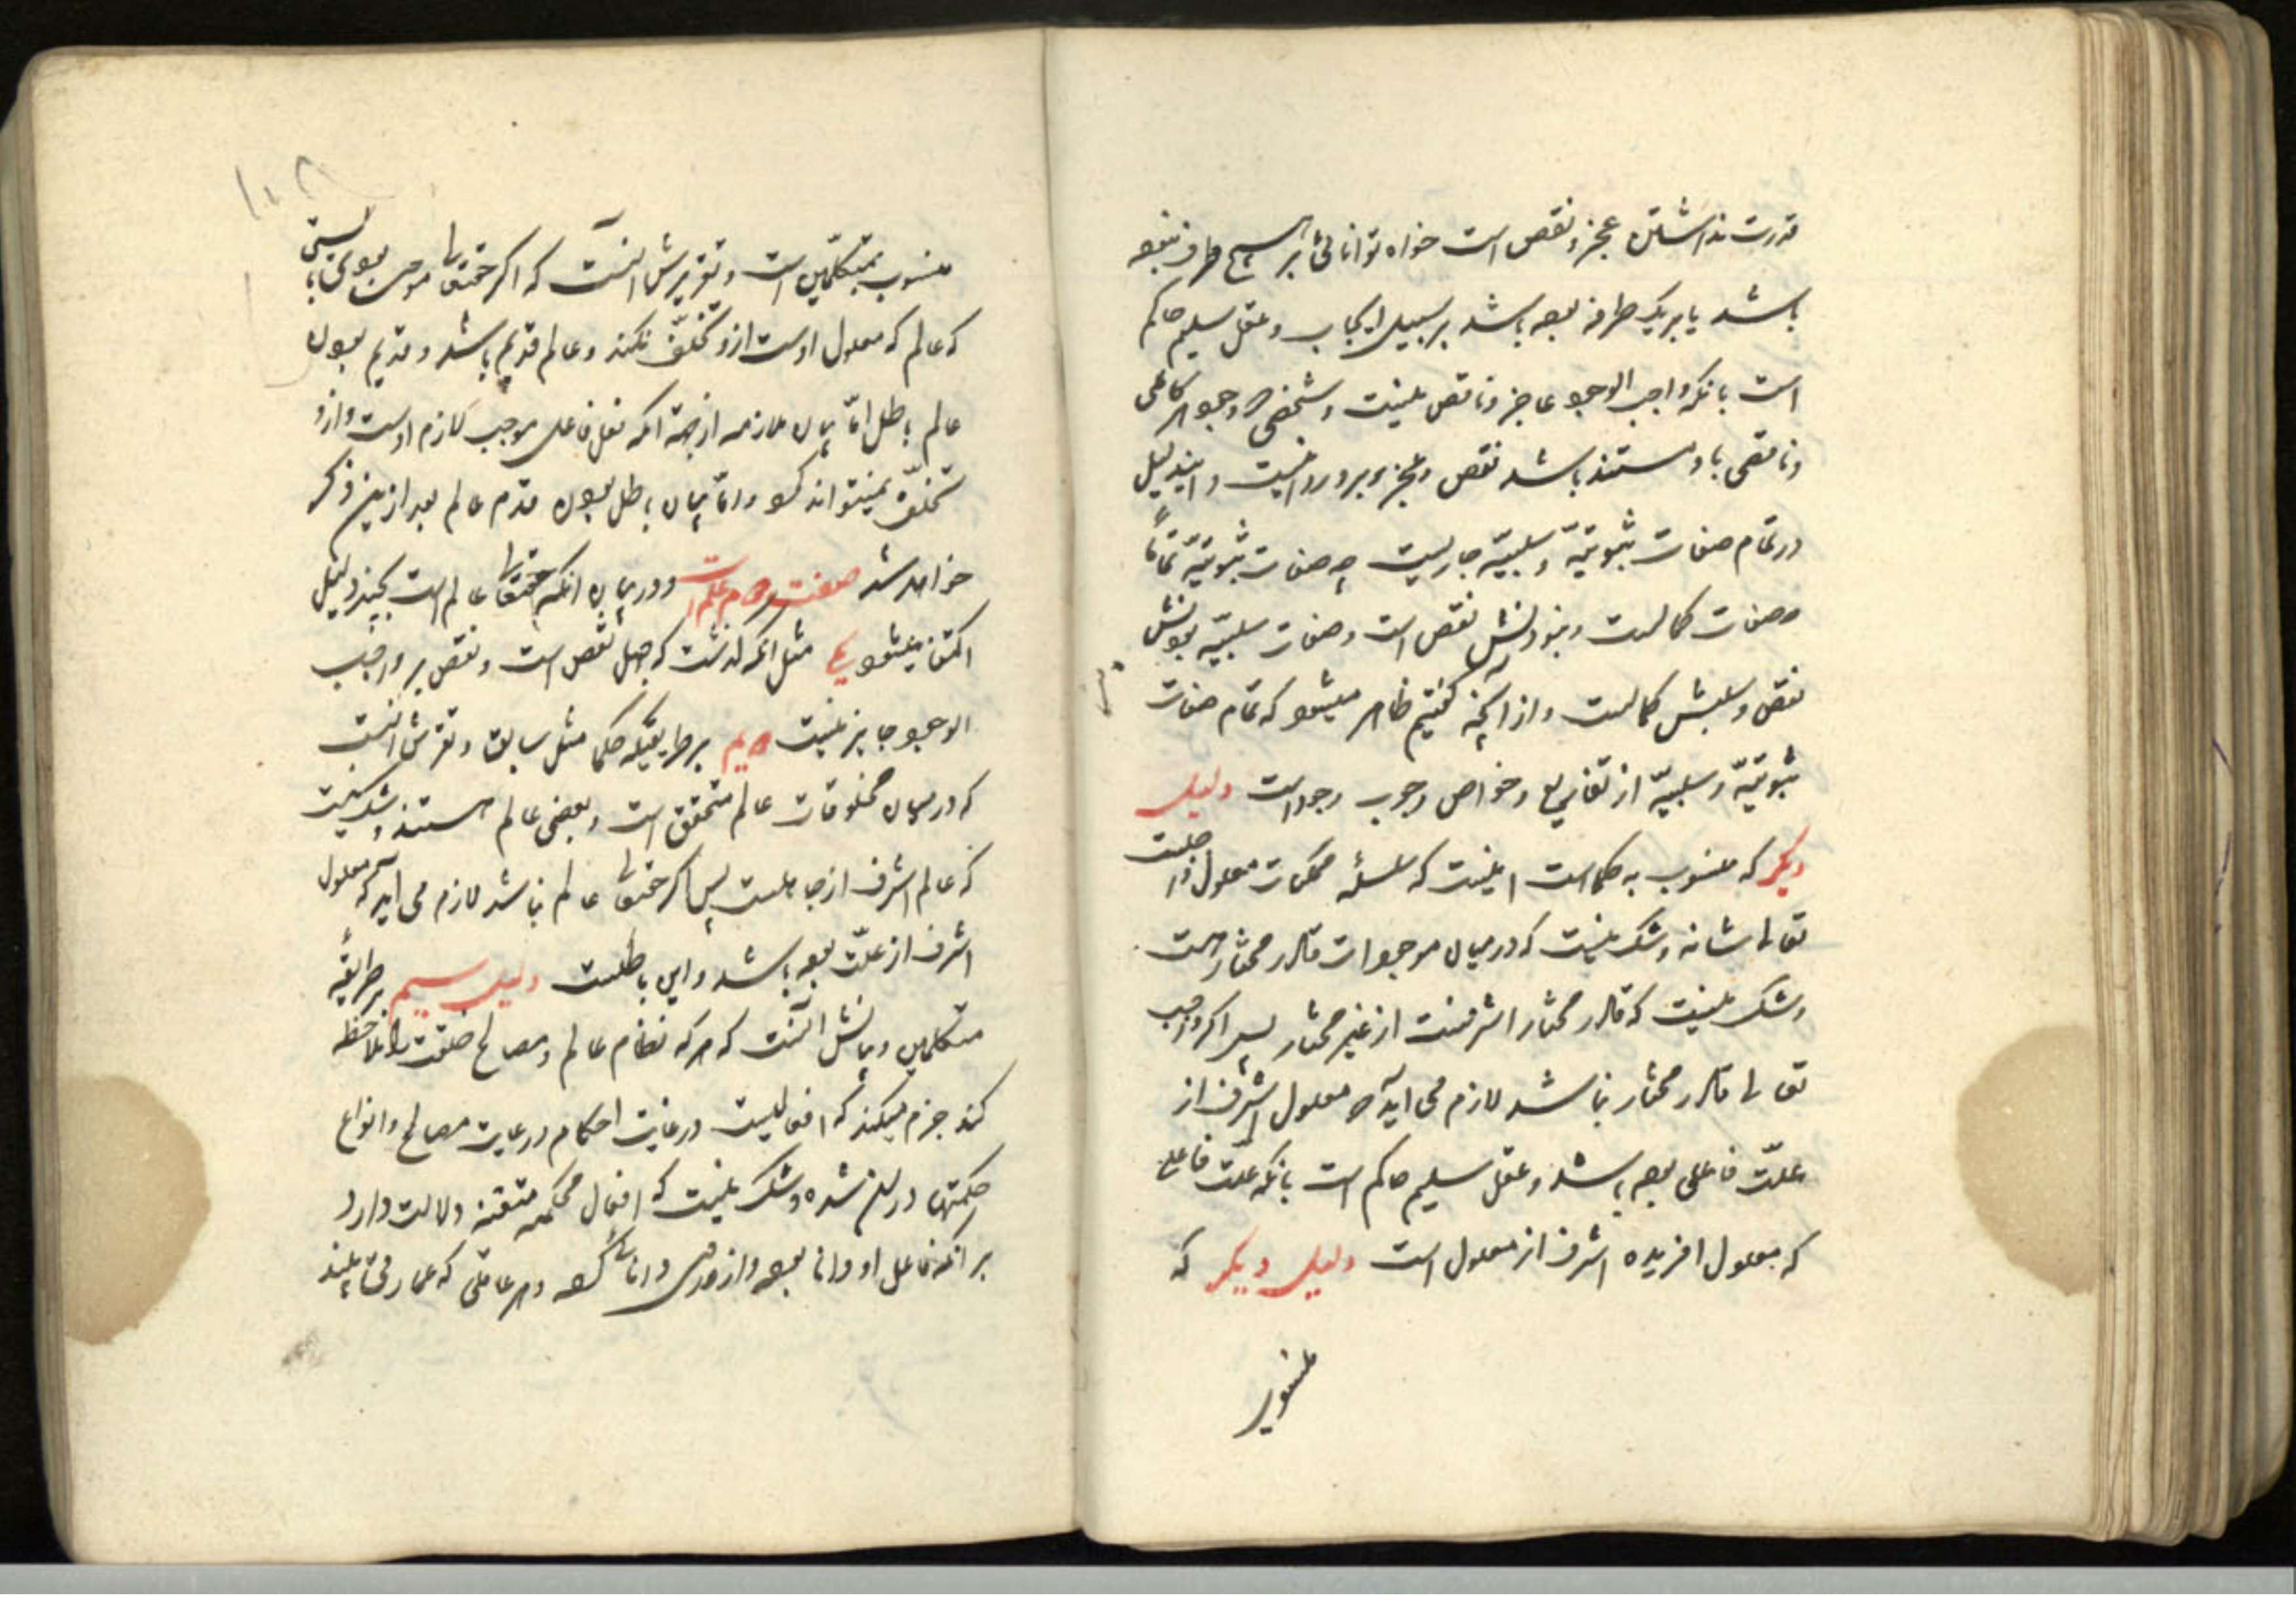 قدرت نداشتن عجز و نقص است خواه توانائی بر هیچ طرف نبوده
باشد یا بر یک طرف بوده باشد بر سبیل ایجاب و عقل سلیم حاکم
است بانکه واجب الوجود عاجز و ناقص نیست و شخصی که وجود هر کاملی
و ناقصی باو مستند باشد نقص و عجز برو روا نیست و این دلیل
در تمام صفات ثبوتیّه و سلبیّه جاریست چه صفات ثبوتیّه تماماً
صفات کمالست و نبودنش نقص است و صفات سلبیّه بودنش
نقص و سلبش کمالست و از آنچه گفتیم ظاهر میشود که تمام صفات
ثبوتیّه و سلبیّه از تفاریع و خواص وجوب وجود است دلیل
دیکر که منسوب به حکماست اینست که سلسله ممکنات معلول واجبست
تعالی شانه و شک نیست که در میان موجودات قادر مختار هست
و شک نیست که قادر مختار اشرفست از غیر مختار پس اکر واجب
تعالی قادر مختار نباشد لازم می آید که معلول اشرف از
علّت فاعلی بوده باشد و عقل سلیم حاکم است بانکه علّت فاعلی
که معلول افریده اشرف از معلول است دلیل دیکر که
منسوب
۱۰۸
منسوب بمتکلّمین است و تقریرش انست که اکر حقتعالی موجب بودی بایستی
که عالم که معلول اوست ازو تخلّف نکند و عالم قدیم باشد و قدیم بودن
عالم باطل امّا بیان ملازمه از جهة انکه فعل فاعل موجب لازم اوست و ازو
تخلّف نمیتواند کرد و امّا بیان باطل بودن قدم عالم بعد ازین ذکر
خواهد شد صفت دویم علم است و در بیان انکه حقتعالی عالم است بچند دلیل
اکتفا میشود یکی مثل انکه گذشت که جهل نقص است و نقص بر واجب
الوجود جایز نیست دویم بر طریقه حکما مثل سابق و تقریرش انست
که در میان مخلوقات عالم متحقق است و بعضی عالم هستند و شک نیست
که عالم اشرف از جاهلست پس اکر حقتعالی عالم نباشد لازم می آید که معلول
اشرف از علّت بوده باشد و این باطلست دلیل سیم بر طریقه
متکلمین و بیانش آنست که هر که نظام عالم و مصالح خلقت را ملاحظه
کند جزم میکند که افعالیست در غایت احکام و رعایت مصالح و انواع
حکمتها در ان شده و شک نیست که افعال محکمه متقنه دلالت دارد
بر انکه فاعل او دانا بوده و از روی دانائی کرده و هر عاقلی که عمارتی به بیند